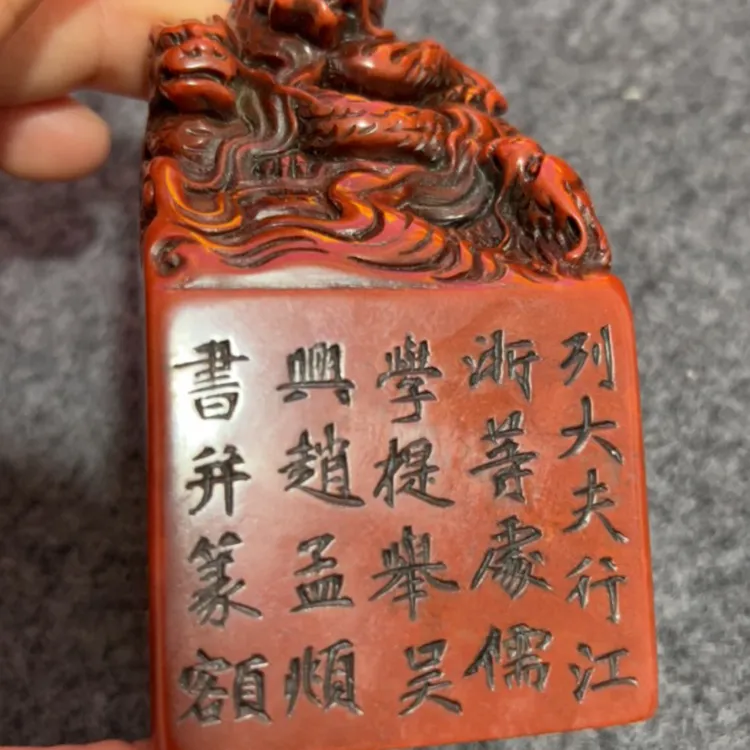 列大夫行江
浙等處儒
學提舉吴
興趙孟頫
書并篆額